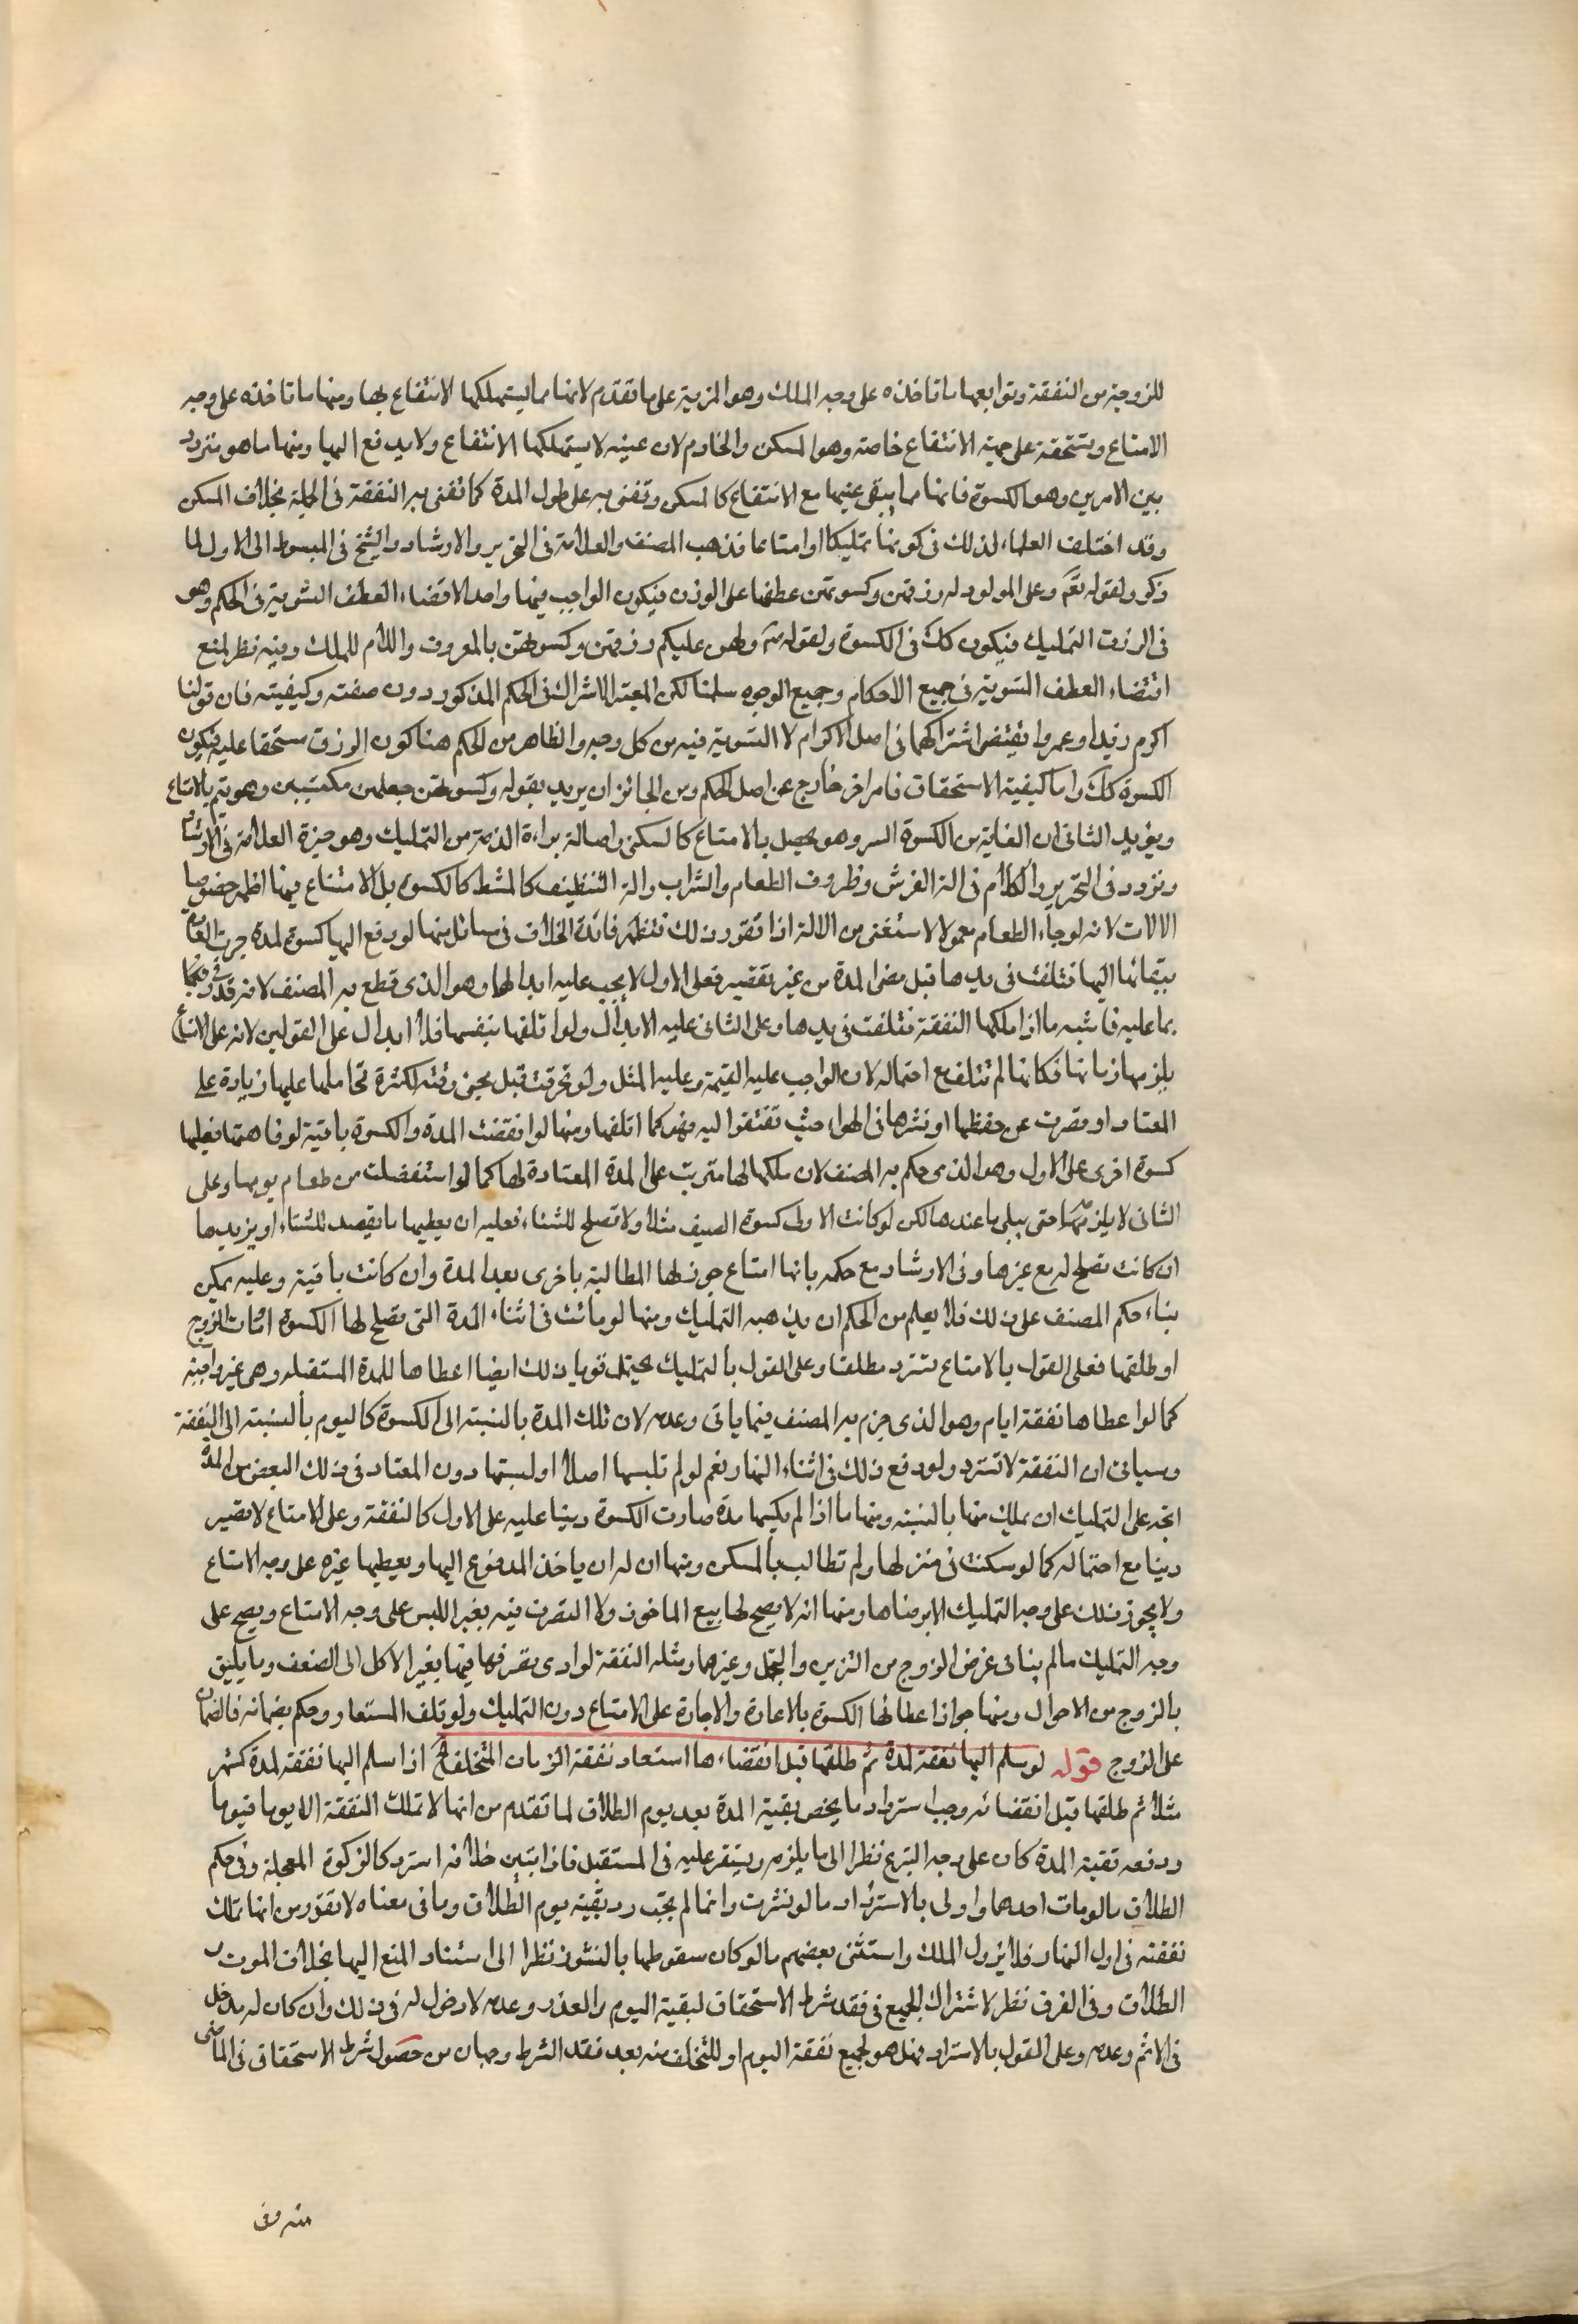 للزوجة من النفقة وتوابعها ما تاخذه على وجه الملك وهو المزية على ما تقدم لانها مما يستهلكها الانتفاع بها ومنها ما تاخذه على وجه
الامتاع ويستحقه على جهة الانتفاع خاصة وهو المسكن والخادم لان عينه لا يستهلكها الانتفاع ولا يدفع اليها ومنها ما هو متردد
بين الامرين وهو الكسوة فانها مما يبقى عينها مع الانتفاع كالمسكن وتفنى به على طول المدة كما تفنى به النفقة في الجملة بخلاف المسكن
وقد اختلف العلماء لذلك في كونها تمليكا او امتاعا فذهب المصنف والعلامة في التحرير والارشاد والشيخ في المبسوط الى الاول لما
ذكر ولقوله تعم وعلى المولود له رزقهن وكسوتهن عطفها على الرزق فيكون الواجب فيهما واحد الاقتضاء العطف التسوية في الحكم وهو
في الرزق التمليك فيكون كك في الكسوة ولقوله ولهن عليكم رزقهن وكسوتهن بالمعروف واللام للملك وفيه نظر لمنع
اقتضاء العطف التسوية في جميع الاحكام وجميع الوجوه سلمنا لكن المعتبر الاشتراك في الحكم المذكور دون صفته وكيفيته فان قولنا
اكرم زيدا وعمروا يقتضي اشتراكهما في اصل الاكرام لا التسوية فيه من كل وجه والظاهر من الحكم هنا كون الرزق مستحقا عليه فيكون
الكسوة كك واما كيفية الاستحقاق فامر اخر خارج عن اصل الحكم ومن الجائز ان يريد بقوله وكسوتهن جعلهن مكتسبين وهو يتم بالامتاع
ويؤيد الثاني ان الغاية من الكسوة الستر وهو يحصل بالامتاع كالسكنى واصالة براءة الذمة من التمليك وهو خيرة العلامة في الارشاد
وتردد في التحرير والكلام في الة الفرش وظروف الطعام والشراب والة التنظيف كالمشط كالكسوة بل الامتاع فيها اظهر خصوصا
الالات لانه لو جاء الطعام معمولا لاستغنى من الالة اذا تقرر ذلك فتظهر فائدة الخلاف في مسائل منها لو دفع اليها كسوة لمدة جرت العادة
ببقائها اليها فتلفت في يدها قبل مضى المدة من غير تقصير فعلى الاول لا يجب عليه ابدالها وهو الذى قطع به المصنف لانه قد وفيها
بما عليه فاشبه ما اذا ملكها النفقة فتلفت في يدها وعلى الثاني عليه الابدال ولو اتلفها بنفسها فلا ابدال على القولين لانه على الامتاع
يلزمها ضمانها فكانها لم تتلف مع احتماله لان الواجب عليه القيمة وعليه المثل ولو تخرقت قبل مجئ وقته لكثرة تحاملها عليها زيادة على
المعتاد او قصرت عن حفظها او نشرها في الهواء حيث تفتقر اليه فهو كما اتلفها ومنها لو انقضت المدة والكسوة باقية لرفاهتها فعليه لها
كسوة اخرى على الاول وهو الذى حكم به المصنف لان ملكها لها مترتب على المدة المعتادة لها كما لو استفضلت من طعام يومها وعلى
الثاني لا يلزمه حتى يبلى ما عندها لكن لو كانت الاولى كسوة الصيف مثلا ولا تصلح للشتاء فعليه ان يعطيها ما يقصد للشتاء او يزيدها
ان كانت تصلح له مع غيرها وفي الارشاد مع حكمه بانها امتاع جوز لها المطالبة باخرى بعد المدة وان كانت باقية وعليه يمكن
بناء حكم المصنف على ذلك فلا يعلم من الحكم ان مذهبه التمليك ومنها لو ماتت في اثناء المدة التي تصلح لها الكسوة او مات الزوج
او طلقها فعلى القول بالامتاع تسترد مطلقا وعلى القول بالتمليك يحتمل قويا ذلك ايضا اعطاها للمدة المستقبلة وهي غير واجبة
كما لو اعطاها نفقة ايام وهو الذى جزم به المصنف فيما ياتي وعدمه لان تلك المدة بالنسبة الى الكسوة كاليوم بالنسبة الى النفقة
وسياتي ان النفقة لا تسترد ولو دفع ذلك في اثناء النهار نعم لو لم تلبسها اصلا او لبستها دون المعتاد في ذلك البعض من المدة
اتجه على التمليك ان يملك منها بالنسبة ومنها ما اذا لم يكسها مدة صارت الكسوة دينا عليه على الاول كالنفقة وعلى الامتاع لا تصير
دينا مع احتماله كما لو سكنت في منزلها ولم تطالب بالمسكن ومنها ان له ان ياخذ المدفوع اليها ويعطيها غيره على وجه الامتاع
ولا يجوز ذلك على وجه التمليك الا برضاها ومنها انه لا يصح لها بيع الماخوذ ولا التصرف فيه بغير اللبس على وجه الامتاع ويصح على
وجه التمليك ما لم ينافى غرض الزوج من التزين والتجمل وغيرها ومثله النفقة لو ادى تصرفها فيها بغير الاكل الى الضعف وما يليق
بالزوج من الاحوال ومنها جواز اعطائها الكسوة بالاعارة والاجارة على الامتاع دون التمليك ولو تلف المستعار وحكم بضمانه فالضمان
على الزوج قوله لو سلم اليها نفقة لمدة ثم طلقها قبل انقضاءها استعاد نفقة الزمان المتخلف اذا سلم اليها نفقة لمدة كشهر
مثلا ثم طلقها قبل انقضائه وجب استرداد ما يخص بقية المدة بعد يوم الطلاق لما تقدم من انها لا تملك النفقة الا يوما فيوما
ودفعه بقية المدة كان على وجه التبرع نظرا الى ما يلزمه ويستقر عليه في المستقبل فاذا تبين خلافه استرد كالزكوة المعجلة وفي حكم
الطلاق ما لو مات احدهما واولى بالاسترداد ما لو نشزت وانما لم يجب رد بقية يوم الطلاق وما في معناه لما تقرر من انها تملك
نفقته في اول النهار فلا يزول الملك واستثنى بعضهم ما لو كان سقوطها بالنشوز نظرا الى استناد المنع اليها بخلاف الموت و
الطلاق وفي الفرق نظر لاشتراك الجميع في فقد شرط الاستحقاق لبقية اليوم والعذر وعدمه لا دخل له في ذلك وان كان له مدخل
في الاثم وعدمه وعلى القول بالاسترداد فهل هو لجميع نفقة اليوم او للتخلف منه بعد فقد الشرط وجهان من حصول شرط الاستحقاق في الماضي